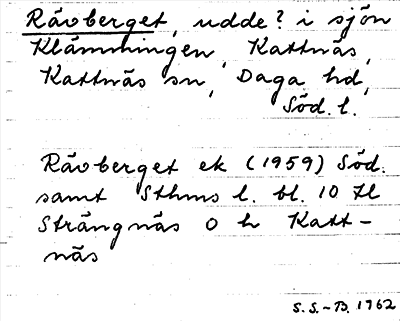 Rävberget, udde? i sjön
Klämmingen, Kattnäs,
Kattnäs sn, Daga hd,
Söd. l.
Rävberget ek (1959) Söd.
samt Sthms l. bl. 10 H
Strängnäs O h Katt-
näs
S.S.-B. 1962